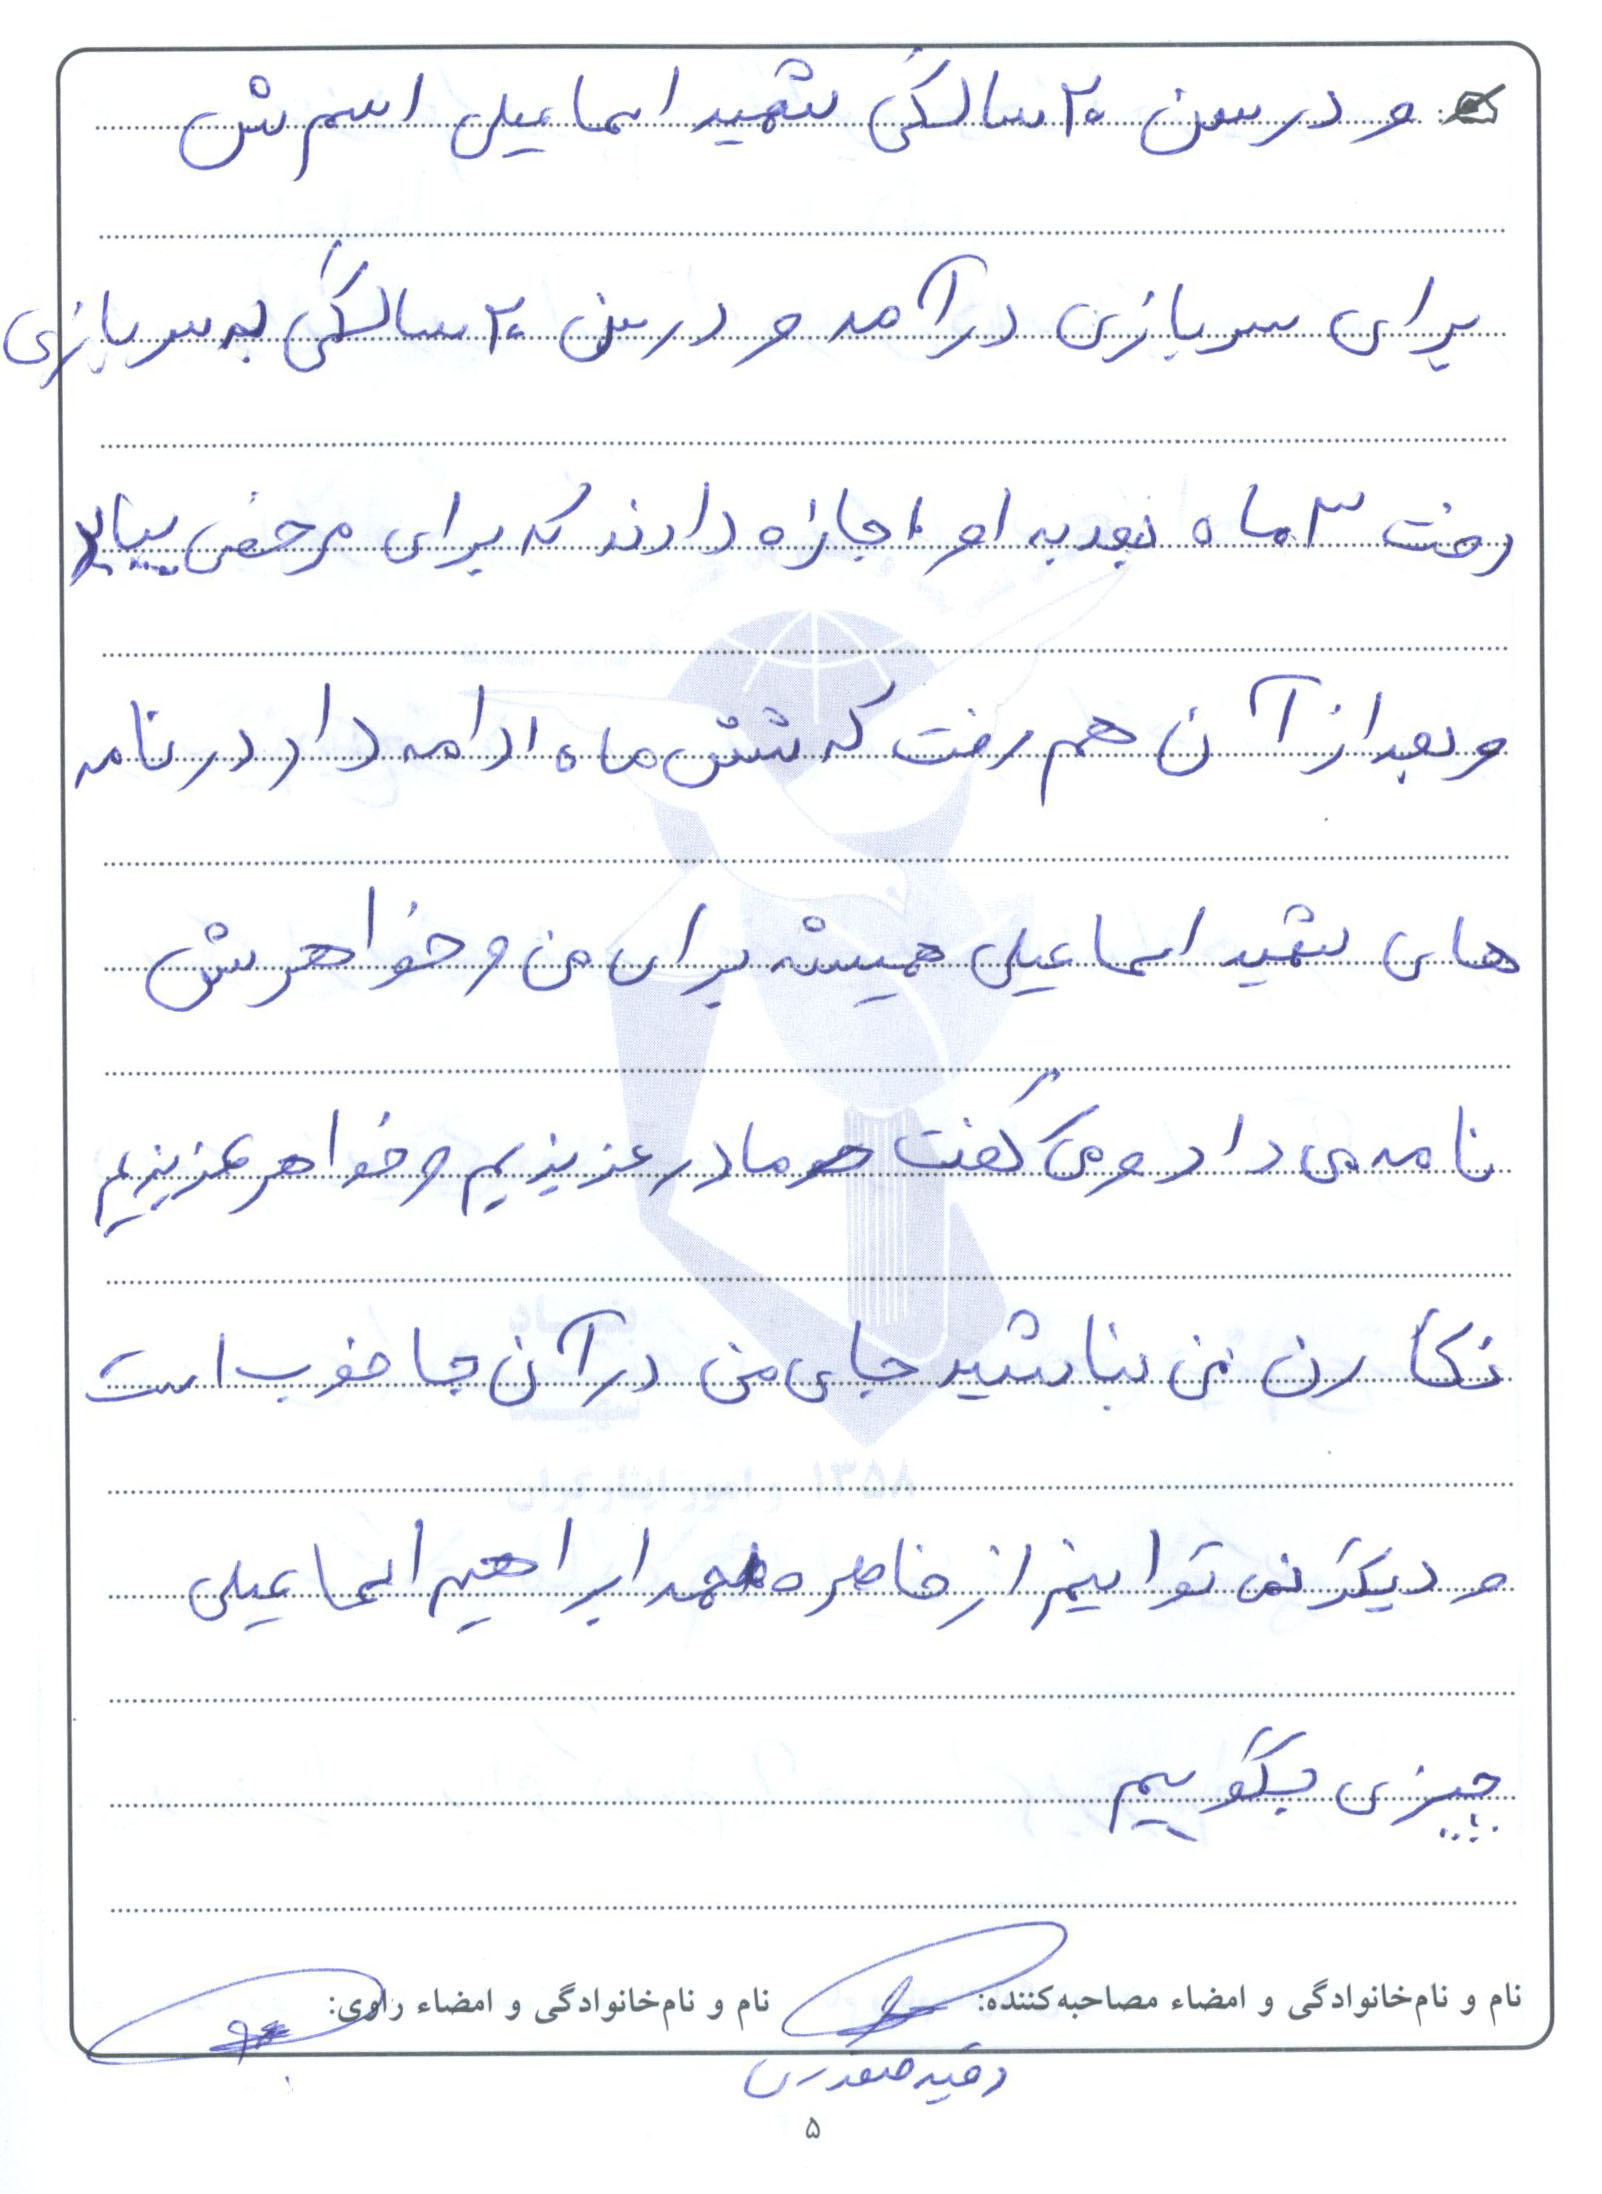 و در سن ۲۰ سالگی شهید اسماعیلی اسم ش
برای سربازی در آمد و در سن ۲۰ سالگی به سربازی
رفت ۳ ماه بعد به او اجازه دادند که برای مرخصی بیاید
و بعد از آن هم رفت که شش ماه ادامه داد در نامه
های شهید اسماعیلی همیشه برای من و خواهرش
نامه می داد و می گفت مادر عزیزیم و خواهر عزیزیم
نگارن من نباشید جای من در آن جا خوب است
و دیگر نمی توانیم از خاطره محمد ابراهیم اسماعیلی
چیزی بگوییم
نام و نام‌خانوادگی و امضاء مصاحبه‌کننده: نام و نام‌خانوادگی و امضاء راوی:
رقیه صفدری
۵
بنیاد
شهید
و امور ایثارگران ۱۳۵۸